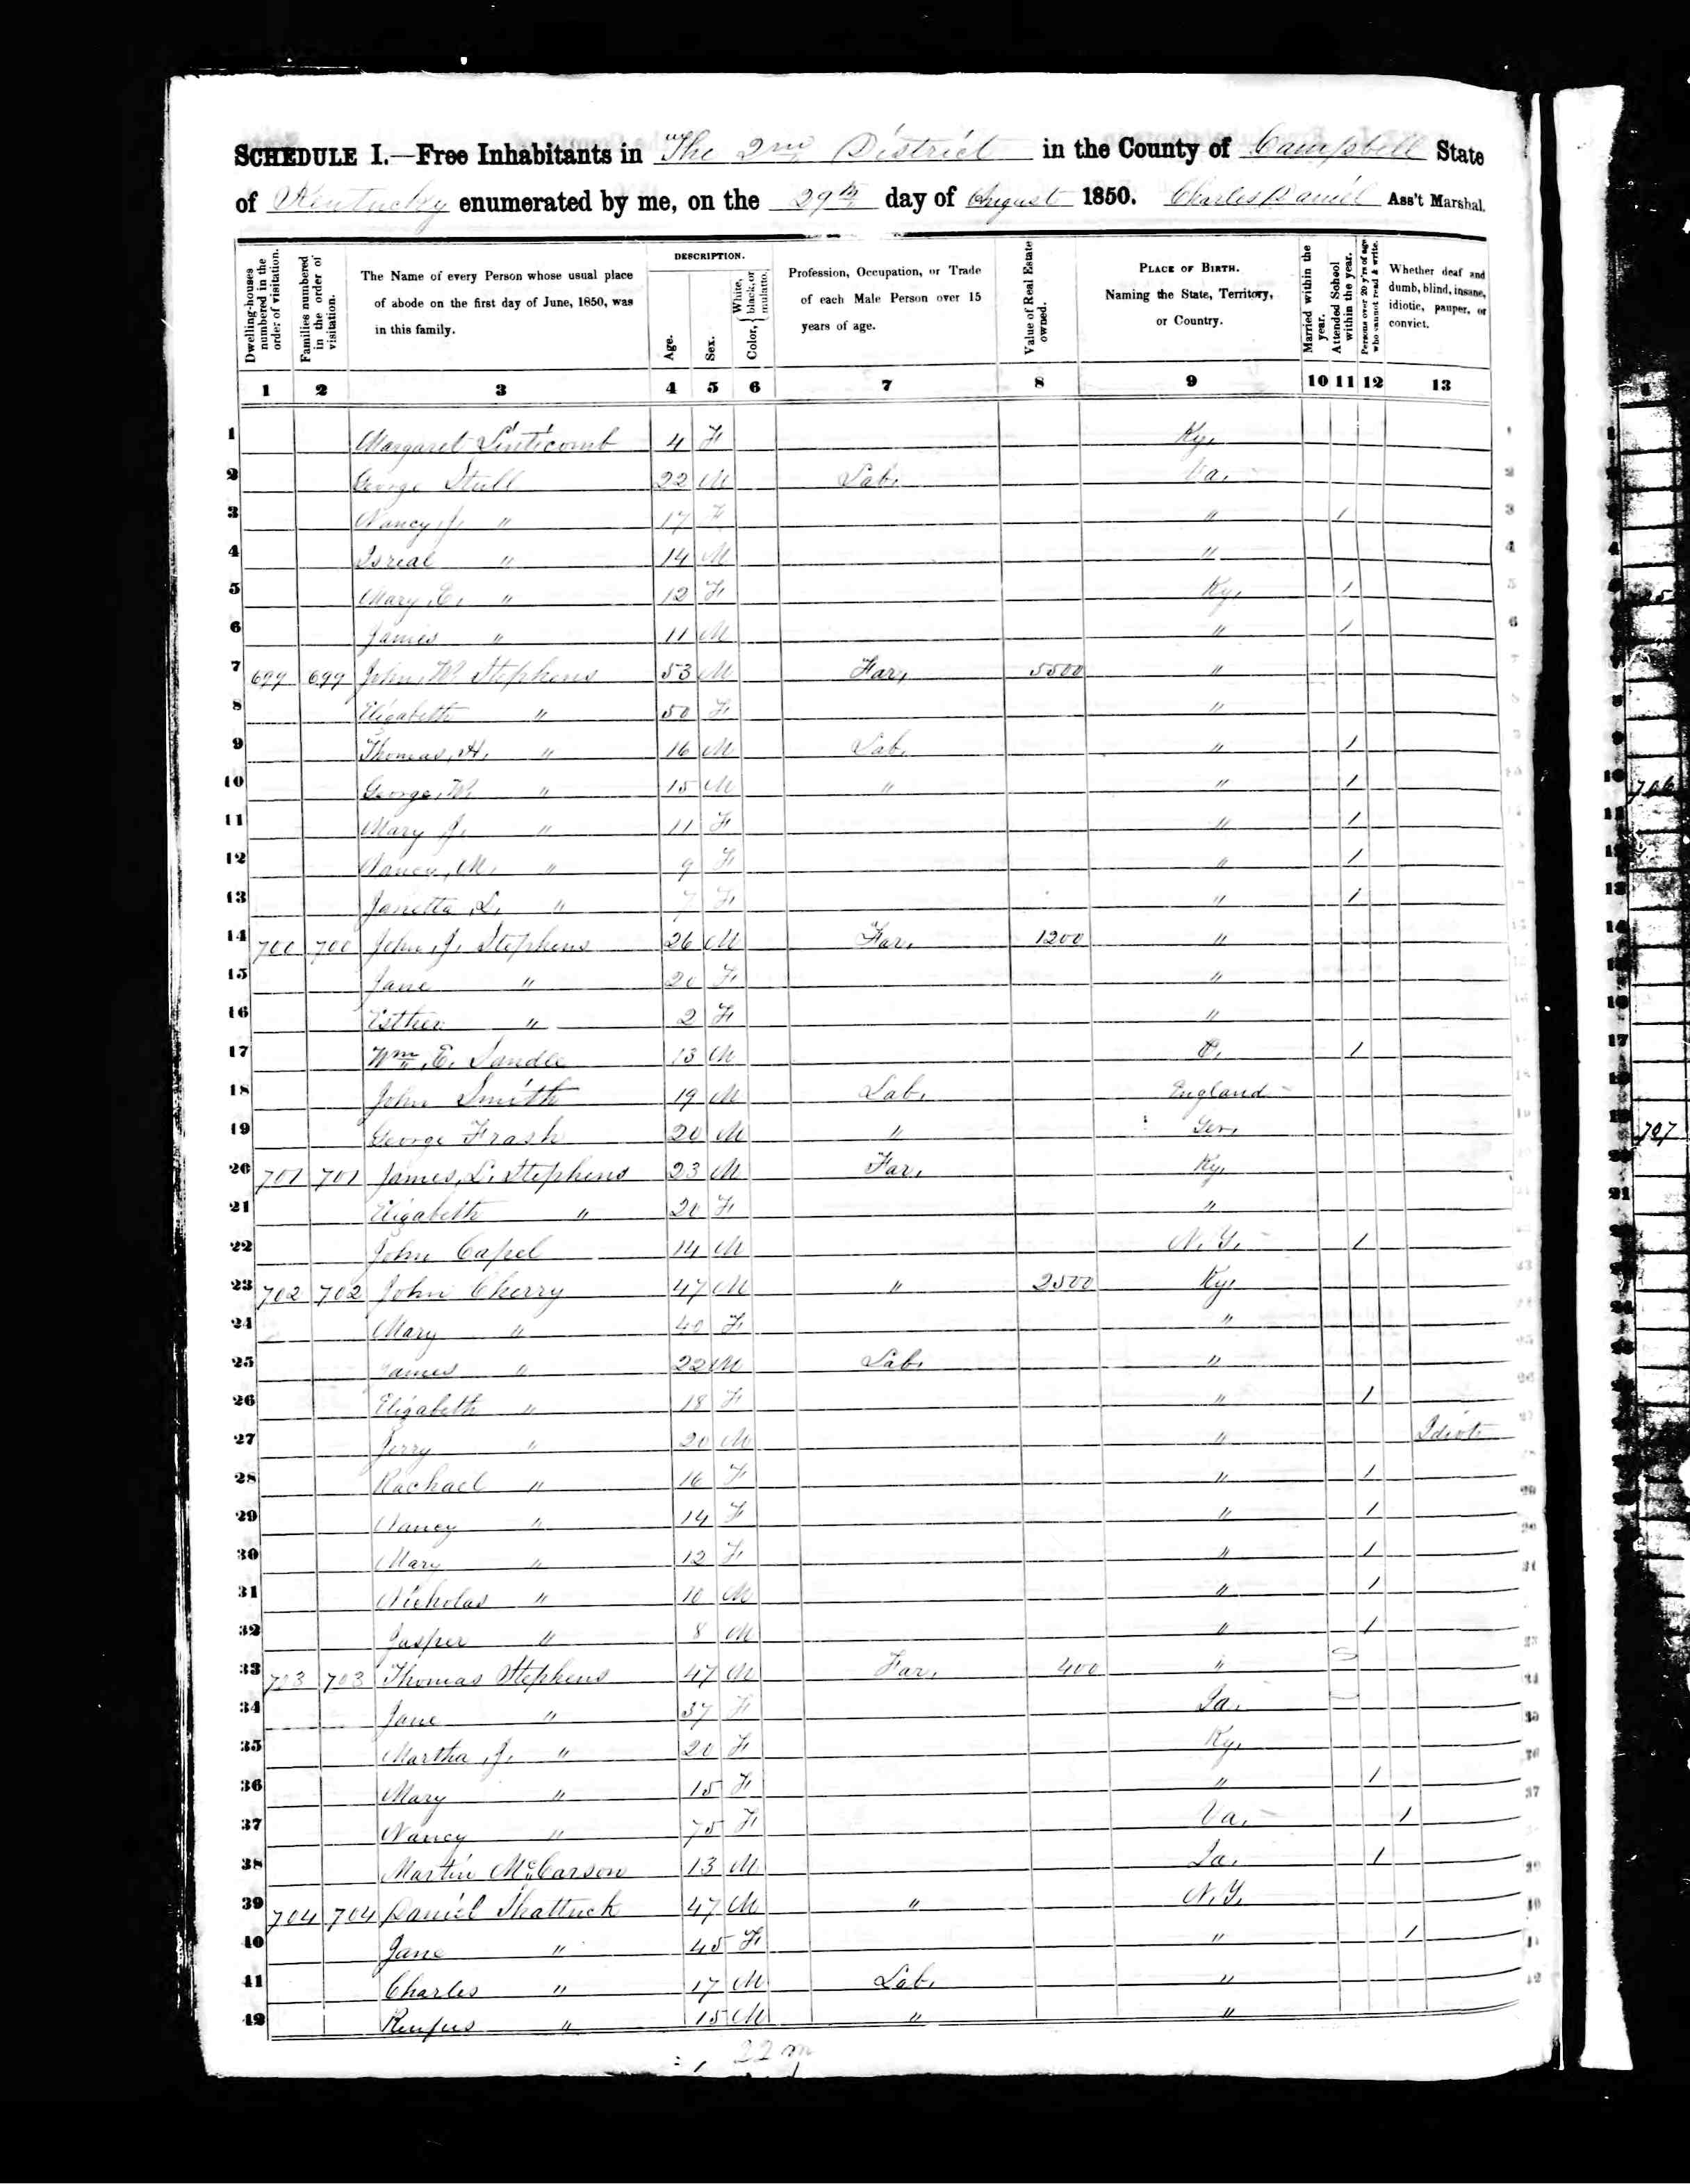 SCHEDULE I.—Free Inhabitants in The 2nd District in the County of Campbell State
of Kentucky enumerated by me, on the 29th day of August 1850. Charles Daniel Ass't Marshal.
Dwelling-houses numbered in the order of visitation.
Families numbered in the order of visitation.
The Name of every Person whose usual place of abode on the first day of June, 1850, was in this family.
DESCRIPTION.
Age.
Sex.
Color, { White, black, or mulatto.
Profession, Occupation, or Trade of each Male Person over 15 years of age.
Value of Real Estate owned.
PLACE OF BIRTH. Naming the State, Territory, or Country.
Married within the year.
Attended School within the year.
Persons over 20 y'rs of age who cannot read & write.
Whether deaf and dumb, blind, insane, idiotic, pauper, or convict.
1 2 3 4 5 6 7 8 9 10 11 12 13
1 Margaret Linticomb 4 F Ky,
2 George Stull 22 M Lab, Va,
3 Nancy, J, " 17 F " 1
4 Isreal " 14 M "
5 Mary, E, " 12 F Ky, 1
6 James " 11 M " 1
7 699 699 John, W Stephens 53 M Far, 5500 "
8 Elizabeth " 50 F "
9 Thomas, H, " 16 M Lab, " 1
10 George, W " 15 M " " 1
11 Mary J, " 11 F " 1
12 Nancy, M, " 9 F " 1
13 Janetta, L, " 7 F " 1
14 700 700 John, J, Stephens 26 M Far, 1200 "
15 Jane " 20 F "
16 Esther " 2 F "
17 Wm, E, Sandle 13 M O, 1
18 John Smith 19 M Lab, England
19 George Frash 20 M " Ger,
20 701 701 James, L, Stephens 23 M Far, Ky,
21 Elizabeth " 20 F "
22 John Capel 14 M N. Y. 1
23 702 702 John Cherry 47 M " 2500 Ky,
24 Mary " 40 F "
25 James " 22 M Lab, "
26 Elizabeth " 18 F " 1
27 Jerry " 20 M " Idiot
28 Rachael " 16 F " 1
29 Nancy " 14 F " 1
30 Mary " 12 F " 1
31 Nicholas " 10 M " 1
32 Jasper " 8 M " 1
33 703 703 Thomas Stephens 47 M Far, 400 "
34 Jane " 37 F Ia,
35 Martha, J, " 20 F Ky,
36 Mary " 15 F " 1
37 Nancy " 75 F Va, 1
38 Martin McCarson 13 M Ia, 1
39 704 704 Daniel Shattuck 47 M " N. Y.
40 Jane " 45 F " 1
41 Charles " 17 M Lab, "
42 Rufus " 15 M " "
22 m
706
707